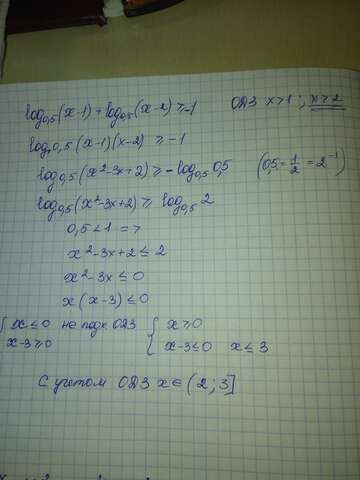 log₀,₅(x-1)+log₀,₅(x-2)≥-1 ОДЗ x>1; x>2
log₀,₅(x-1)(x-2)≥-1
log₀,₅(x²-3x+2)≥-log₀,₅0,5 (0,5=1/2=2⁻¹)
log₀,₅(x²-3x+2)≥log₀,₅2
0,5<1 =>
x²-3x+2≤2
x²-3x≤0
x(x-3)≤0
{x≤0 не подх ОДЗ {x≥0
x-3≥0 x-3≤0 x≤3
С учетом ОДЗ x∈(2;3]